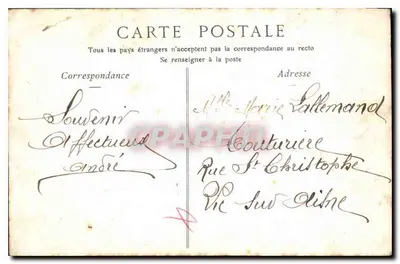 CARTE POSTALE
Tous les pays étrangers n'acceptent pas la correspondance au recto
Se renseigner à la poste
Correspondance
Adresse
Souvenir
Affectueux
André
Mlle Marie Lallemand
Couturière
Rue St Christophe
Vic sur Aisne